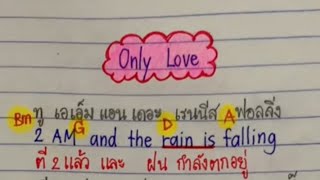 Only Love
Bm ทู เอเอ็ม แอน เดอะ เรนนีส A ฟอลลิ่ง
2 AM G and the D rain is falling
ตี 2 แล้ว และ ฝน กำลังตกอยู่